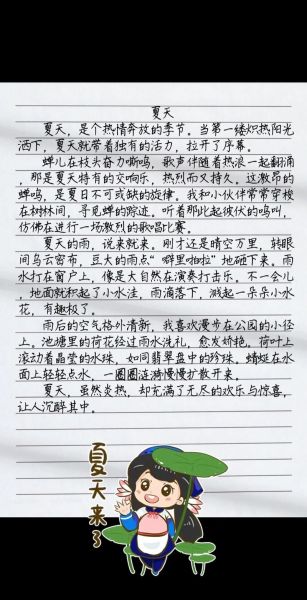 夏天
夏天，是个热情奔放的季节。当第一缕炽热阳光
洒下，夏天就带着独有的活力，拉开了序幕。
蝉儿在枝头奋力嘶鸣，歌声伴随着热浪一起翻涌
，那是夏天特有的交响乐，热烈而又持久。这激昂的
蝉鸣，是夏日不可或缺的旋律。我和小伙伴常常穿梭
在树林间，寻觅蝉的踪迹。听着那此起彼伏的鸣叫，
仿佛在进行一场激烈的歌唱比赛。
夏天的雨，说来就来。刚才还是晴空万里，转眼
间乌云密布，豆大的雨点“噼里啪啦”地砸下来。雨
水打在窗户上，像是大自然在演奏打击乐。不一会儿
，地面就积起了小水洼，雨滴落下，溅起一朵朵小水
花，有趣极了。
雨后的空气格外清新，我喜欢漫步在公园的小径
上。池塘里的荷花经过雨水洗礼，愈发娇艳。荷叶上
滚动着晶莹的水珠，如同翡翠盘中的珍珠。蜻蜓在水
面上轻轻点水，一圈圈涟漪慢慢扩散开来。
夏天，虽然炎热，却充满了无尽的欢乐与惊喜，
让人沉醉其中。
夏天来了